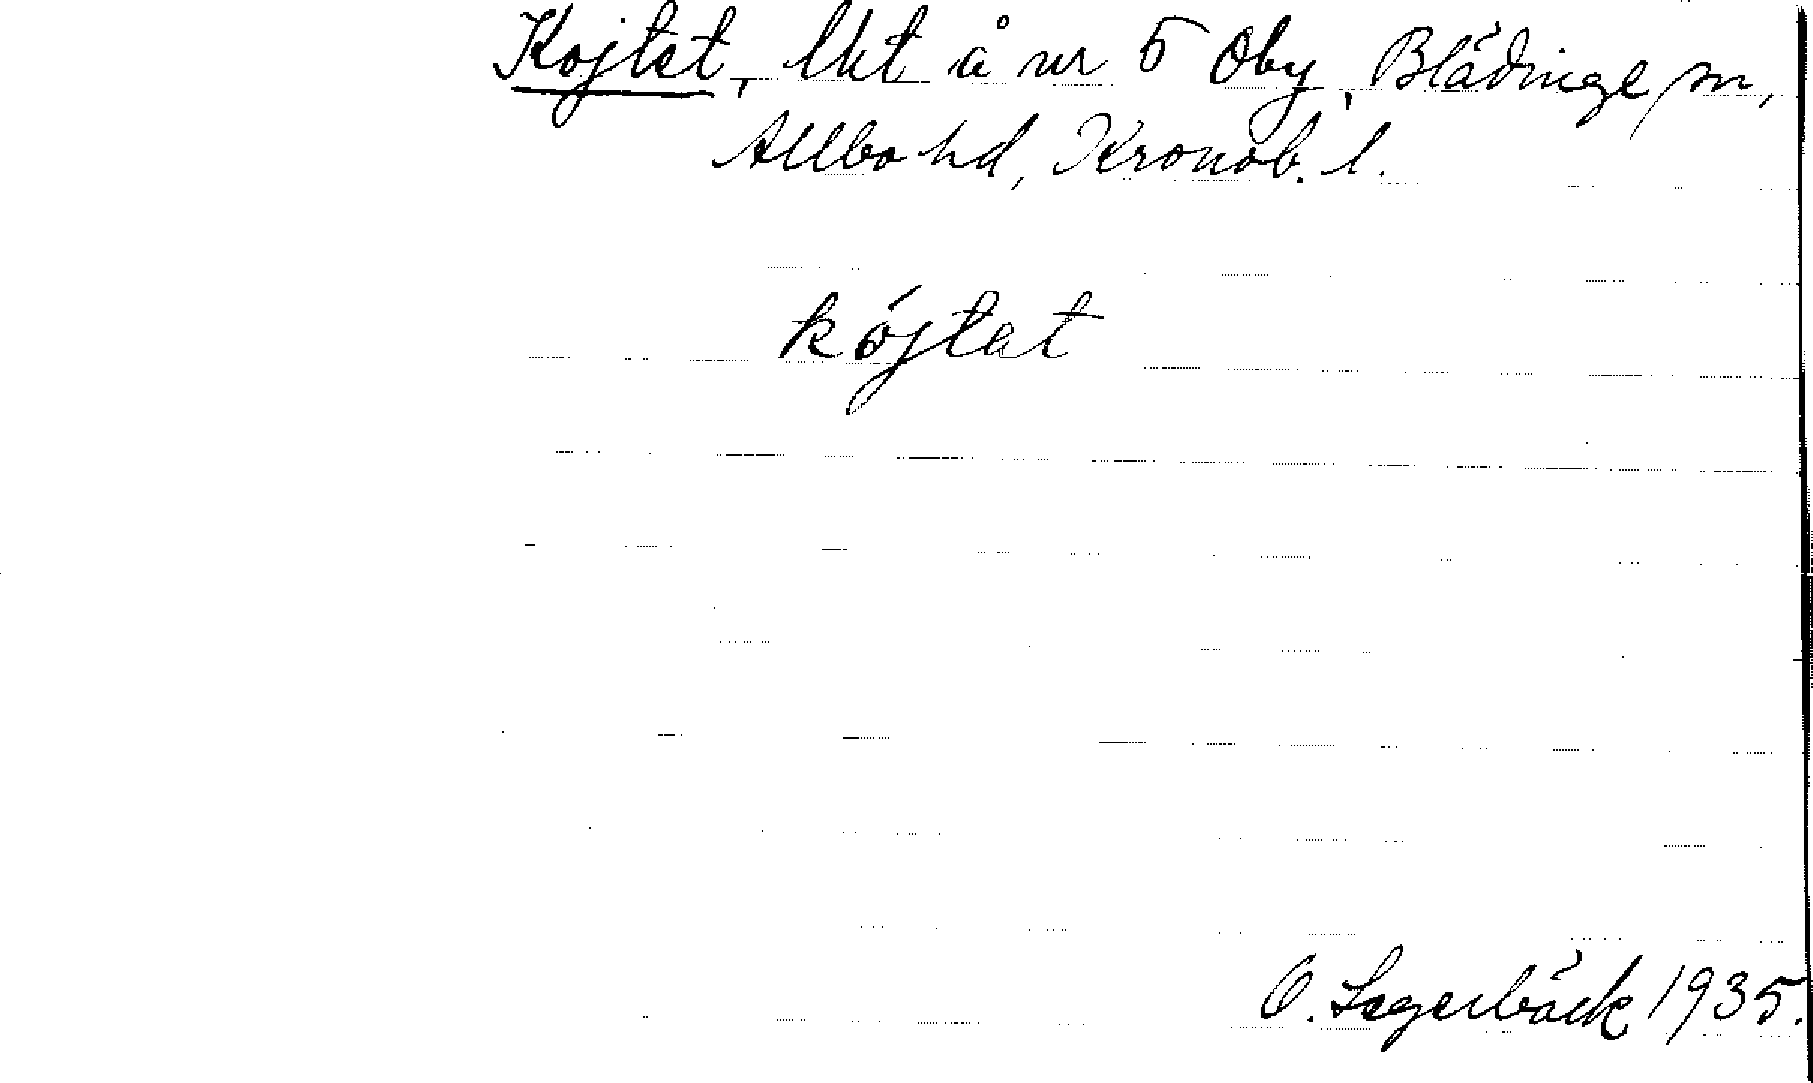 Kojtet, lkt å nr 5 Oby, Blädinge sn,
Allbo hd, Kronob. l.
kójtat
O. Lagerbäck 1935.